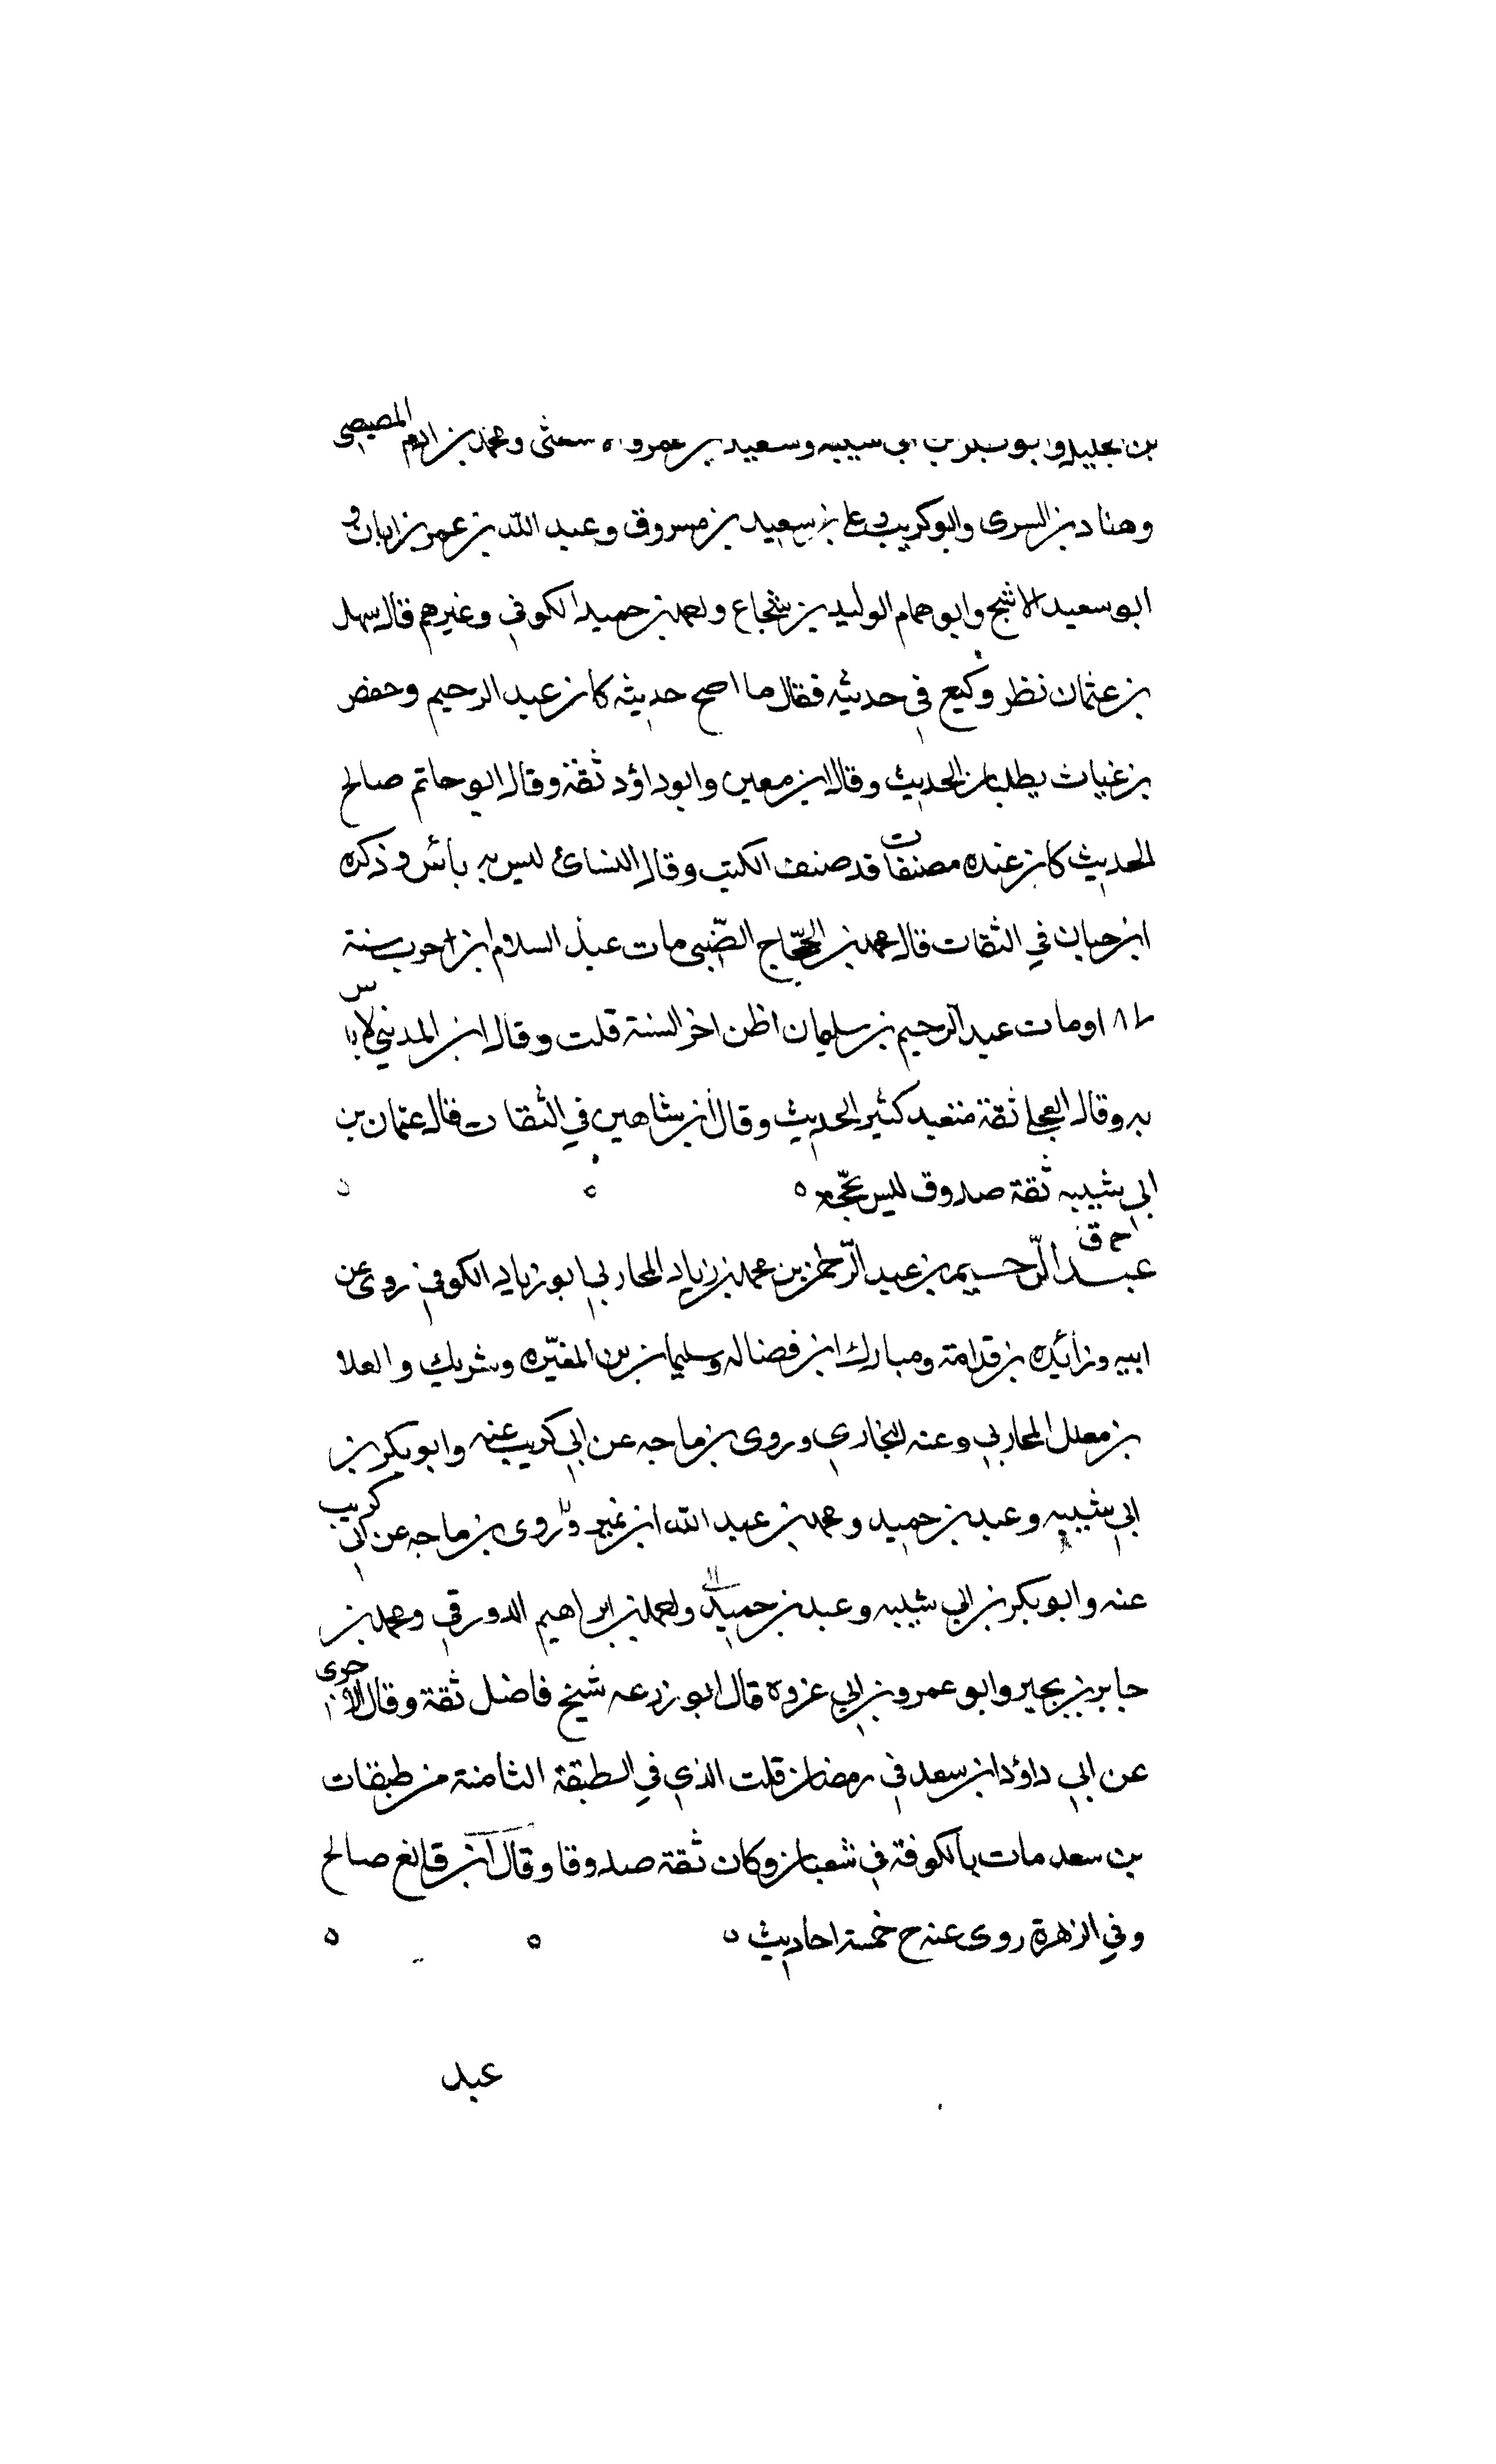 وسعيد بن عمرو الاشعثى ومحمد بن ادم المصيصى
وهناد بن السرى وابو كريب وعلى بن سعيد بن مسروق وعبد الله بن عمر بن ابان و
ابو سعيد الاشج وابو همام الوليد بن شجاع واحمد بن حميد الكوفي وغيرهم قال سهل
بن عثمان نظر وكيع في حديثه فقال ما اصح حديثه كان عبد الرحيم وحفص
بن غياث يطلبان الحديث وقال ابن معين وابو داؤد ثقة وقال ابو حاتم صالح
الحديث كان عنده مصنفات قد صنف الكتب وقال النسائ ليس به بأس وذكره
ابن حبان في الثقات قال محمد بن الحجّاج الضّبى مات عبد السلام ابن حرب سنة
١٨٧ ومات عبد الرحيم بن سليمان اظن اخر السنة قلت وقال ابن المدينى لا باس
به وقال العجلى ثقة متعبد كثير الحديث وقال ابن شاهين في الثقات قال عثمان بن
ابي شيبه ثقة صدوق ليس بحجّة ٥
خ ق
عبد الرّحيم بن عبد الرّحمن بن محمد بن زياد المحاربي ابو زياد الكوفي روى عن
ابيه وزائده بن قدامة ومبارك ابن فضاله وسليمان بن المغيّره وشريك والعلا
بن معلل المحاربي وعنه البخاري وروى بن ماجه عن ابي كريب عنه وابو بكر بن
ابي شيبه وعبد بن حميد ومحمد بن عبد الله ابن نمير وروى بن ماجه عن ابي كريب
عنه وابو بكر بن ابي شيبه وعبد بن حميد واحمد بن ابراهيم الدورقي ومحمد بن
جابر بن بجير وابو عمرو بن ابي غزوه قال ابو زرعه شيخ فاضل ثقة وقال الاجرى
عن ابي داؤد ابن سعد في رمضان قلت الذي في الطبقة الثامنة من طبقات
بن سعد مات بالكوفة في شعبان وكان ثقة صدوقا وقال ابن قانع صالح
وفي الزهرة روى عنه خ خمسة احاديث ٥
عبد